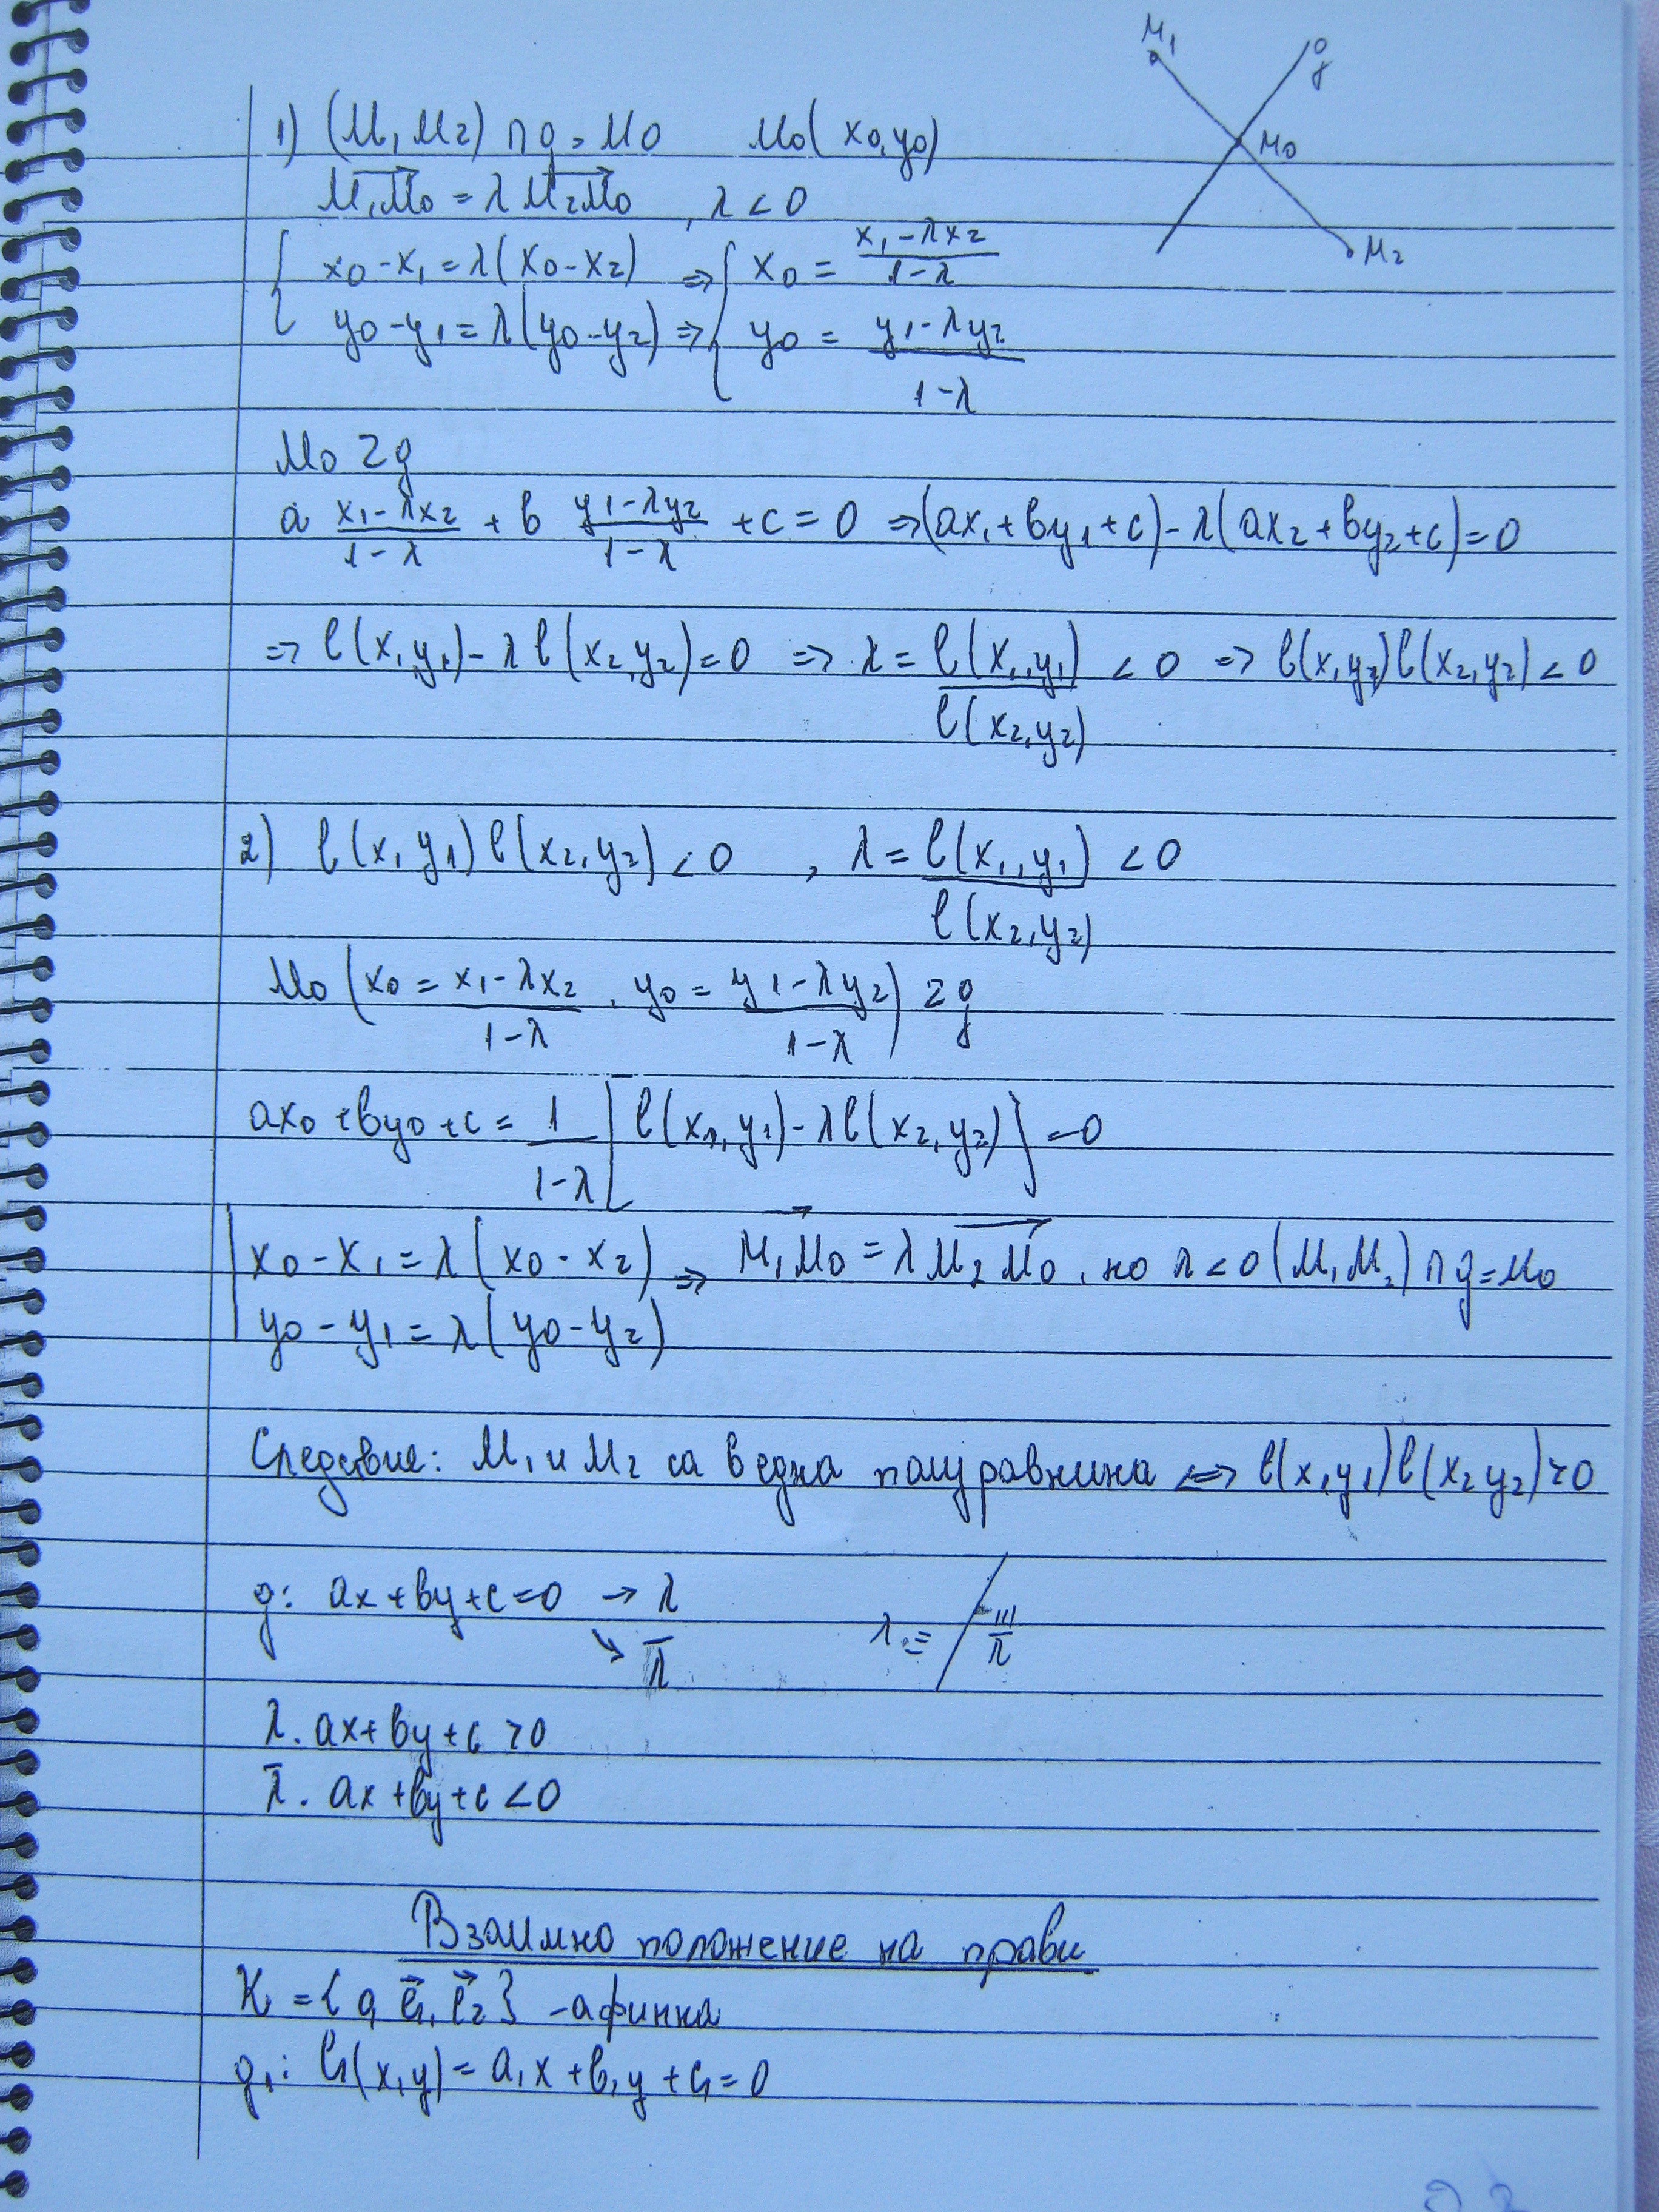 M₁
g
1) (M₁M₂) ∩ g = M₀ M₀(x₀,y₀)
M₀
M₁M₀ = λ M₂M₀ , λ < 0
M₂
x₀ - x₁ = λ(x₀ - x₂) ⇒ x₀ = (x₁ - λx₂)/(1 - λ)
y₀ - y₁ = λ(y₀ - y₂) ⇒ y₀ = (y₁ - λy₂)/(1 - λ)
M₀ Z g
a (x₁ - λx₂)/(1 - λ) + b (y₁ - λy₂)/(1 - λ) + c = 0 ⇒ (ax₁ + by₁ + c) - λ(ax₂ + by₂ + c) = 0
⇒ l(x₁y₁) - λ l(x₂,y₂) = 0 ⇒ λ = l(x₁,y₁)/l(x₂,y₂) < 0 ⇒ l(x₁y₂) l(x₂,y₂) < 0
2) l(x₁y₁) l(x₂,y₂) < 0 , λ = l(x₁,y₁)/l(x₂,y₂) < 0
M₀ (x₀ = (x₁ - λx₂)/(1 - λ), y₀ = (y₁ - λy₂)/(1 - λ)) Z g
ax₀ + by₀ + c = 1/(1 - λ) [l(x₁,y₁) - λl(x₂,y₂)] = 0
x₀ - x₁ = λ(x₀ - x₂) ⇒ M₁M₀ = λ M₂M₀, но λ < 0 (M₁M₂) ∩ g = M₀
y₀ - y₁ = λ(y₀ - y₂)
Следствие: M₁ и M₂ са в една полуравнина ⇔ l(x₁y₁) l(x₂y₂) > 0
g: ax + by + c = 0 → λ
↘ λ̄
λ λ̄
λ. ax + by + c > 0
λ̄. ax + by + c < 0
Взаимно положение на прави
K = {O, e₁, e₂} - афинна
g₁: l₁(x,y) = a₁x + b₁y + c₁ = 0